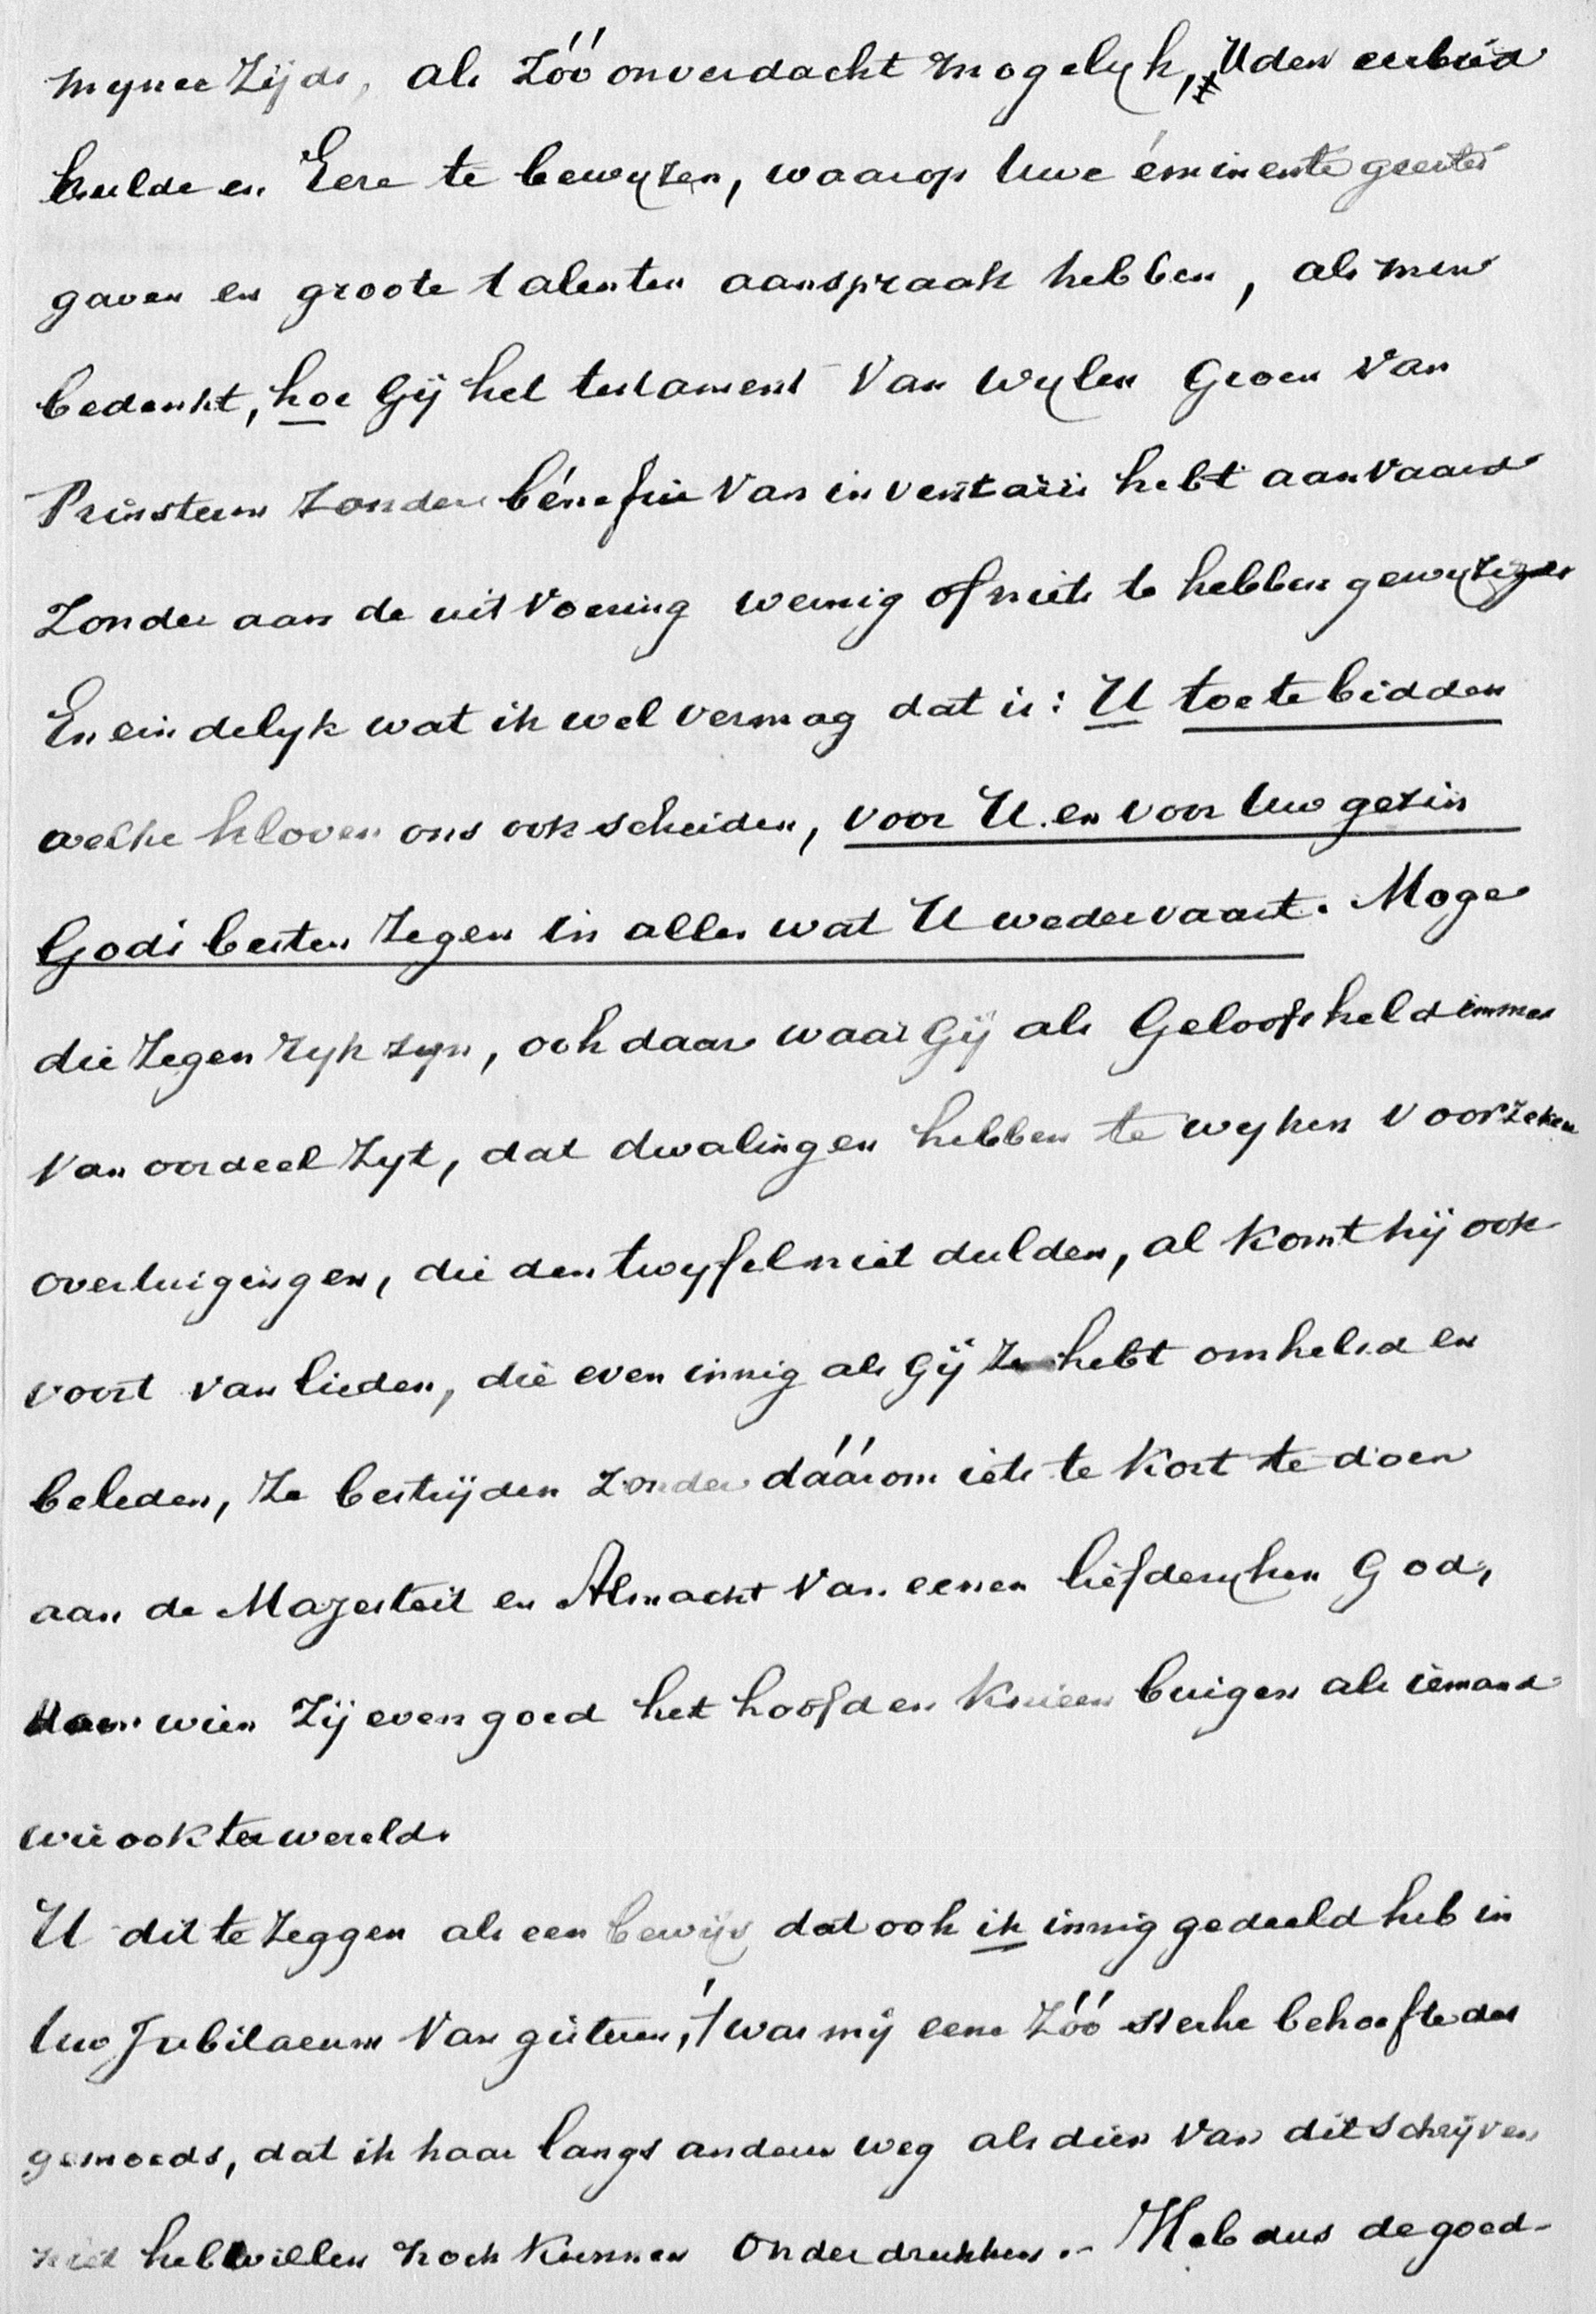 mijner Zijds, als Zóó onverdacht mogelijk, U den eerbied
hulde en Eere te bewijzen, waarop Uwe éminente geestes
gaven en groote talenten aanspraak hebben, als men
bedenkt, hoe Gij het testament Van wijlen Groen Van
Prinsterer Zonder bénefice Van inventaris hebt aanVaard
Zonder aan de uitVoering weinig of niets te hebben gewijzigd
En eindelijk wat ik wel vermag dat is: U toe te bidden
welke kloven ons ook scheiden, voor U en voor Uw gezin
Gods besten Zegen in alles wat U wedervaart. Moge
die Zegen rijk zijn, ook daar waar Gij als Geloofsheld immer
Van oordeel Zijt, dat dwalingen hebben te wijken Voor Zekere
overtuigingen, die den twijfel niet dulden, al Komt hij ook
voort van lieden, die even innig als Gij Ze hebt omhelsd en
beleden, Ze bestrijden Zonder dáárom iets te Kort te doen
aan de Majesteit en Almacht Van eenen liefderijken God,
Voor wien Zij even goed het hoofd en Knieen buigen als iemand
wie ook ter wereld.
U dit te Zeggen als een bewijs dat ook ik innig gedeeld heb in
Uw Jubilaeum Van gisteren, 't was mij eene Zóó sterke behoefte des
gemoeds, dat ik haar langs anderen weg als dien Van dit schrijven
niet heb willen noch Kunnen Onderdrukken. – Heb dus de goed-